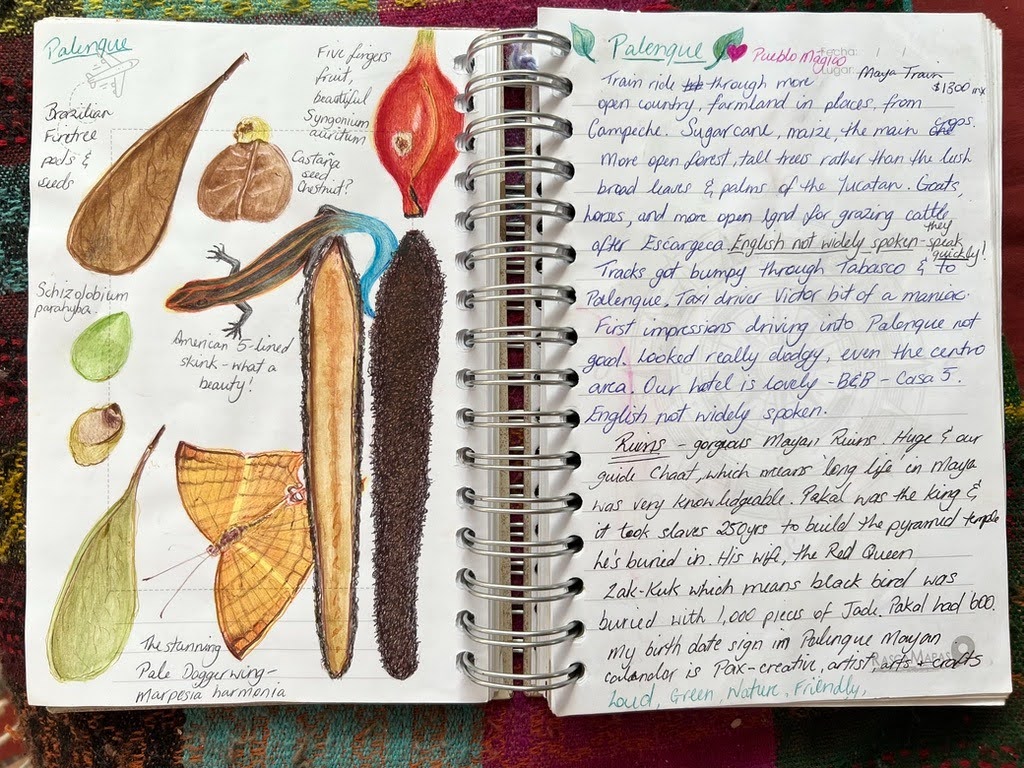 Palengue
Brazilian
Firetree
pods &
seeds
Five fingers
fruit,
beautiful
Syngonium
auritum
Castaña
seed.
Chestnut?
Schizolobium
parahyba.
American 5-lined
skink - what a
beauty!
The stunning
Pale Daggerwing -
marpesia harmonia
Palenque
Pueblo Mágico
Fecha: / /
Lugar:
Maya Train
$1300 mx
Train ride through more
open country, farmland in places, from
Campeche. Sugarcane, maize, the main crops.
More open forest, tall trees rather than the lush
broad leaves & palms of the Yucatan. Goats,
horses, and more open land for grazing cattle
after Escargeca. English not widely spoken - they speak quickly!
Tracks got bumpy through Tabasco & to
Palenque. Taxi driver Victor bit of a maniac.
First impressions driving into Palenque not
good. Looked really dodgy, even the centro
area. Our hotel is lovely - B&B - Casa 5.
English not widely spoken.
Ruins - gorgeous Mayan Ruins. Huge & our
guide Chaat, which means 'long life in Maya
was very knowledgeable. Pakal was the king &
it took slaves 250yrs to build the pyramid temple
he's buried in. His wife, the Red Queen
Zak-Kuk which means black bird was
buried with 1,000 pieces of Jade. Pakal had 600.
my birth date sign in Palenque Mayan
calandar is Pax-creative, artist, arts - crafts
Loud, Green, Nature, Friendly,